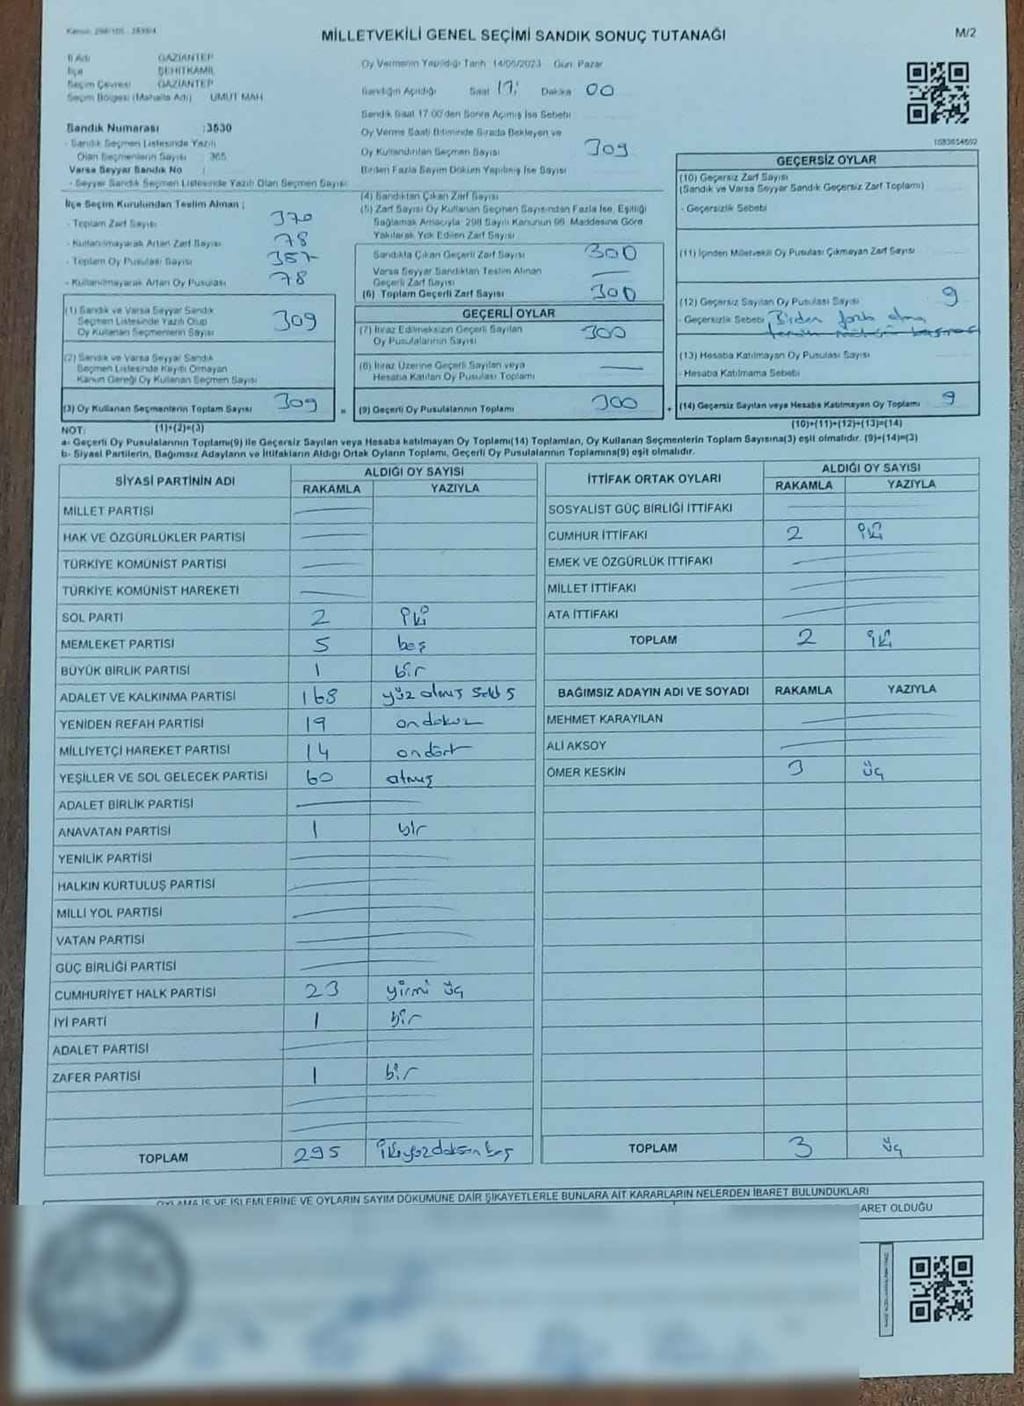 MİLLETVEKİLİ GENEL SEÇİMİ SANDIK SONUÇ TUTANAĞI
M/2
İl Adı GAZİANTEP
İlçe ŞEHİTKAMİL
Seçim Çevresi GAZİANTEP
Seçim Bölgesi (Mahalle Adı) UMUT MAH
Sandık Numarası :3530
- Sandık Seçmen Listesinde Yazılı
Olan Seçmenlerin Sayısı : 365
Varsa Seyyar Sandık No :
- Seyyar Sandık Seçmen Listesinde Yazılı Olan Seçmen Sayısı:
Oy Vermenin Yapıldığı Tarih 14/05/2023 Gün Pazar
Sandığın Açıldığı Saat 17: Dakika 00
Sandık Saat 17.00'den Sonra Açılmış İse Sebebi
Oy Verme Saati Bitiminde Sırada Bekleyen ve
Oy Kullandırılan Seçmen Sayısı 309
Birden Fazla Sayım Döküm Yapılmış İse Sayısı
İlçe Seçim Kurulundan Teslim Alınan ;
- Toplam Zarf Sayısı 370
- Kullanılmayarak Artan Zarf Sayısı 78
- Toplam Oy Pusulası Sayısı 357
- Kullanılmayarak Artan Oy Pusulası 78
(1) Sandık ve Varsa Seyyar Sandık
Seçmen Listesinde Yazılı Olup
Oy Kullanan Seçmenlerin Sayısı 309
(2) Sandık ve Varsa Seyyar Sandık
Seçmen Listesinde Kayıtlı Olmayan
Kanun Gereği Oy Kullanan Seçmen Sayısı
(3) Oy Kullanan Seçmenlerin Toplam Sayısı 309 =
(1)+(2)=(3)
(4) Sandıktan Çıkan Zarf Sayısı
(5) Zarf Sayısı Oy Kullanan Seçmen Sayısından Fazla İse, Eşitliği
Sağlamak Amacıyla 298 Sayılı Kanunun 98. Maddesine Göre
Yakılarak Yok Edilen Zarf Sayısı
Sandıkta Çıkan Geçerli Zarf Sayısı 300
Varsa Seyyar Sandıktan Teslim Alınan
Geçerli Zarf Sayısı
(6) Toplam Geçerli Zarf Sayısı 300
GEÇERLİ OYLAR
(7) İtiraz Edilmeksizin Geçerli Sayılan
Oy Pusulalarının Sayısı 300
(8) İtiraz Üzerine Geçerli Sayılan veya
Hesaba Katılan Oy Pusulası Toplamı
(9) Geçerli Oy Pusulalarının Toplamı 300 +
GEÇERSİZ OYLAR
(10) Geçersiz Zarf Sayısı
(Sandık ve Varsa Seyyar Sandık Geçersiz Zarf Toplamı)
- Geçersizlik Sebebi
(11) İçinden Milletvekili Oy Pusulası Çıkmayan Zarf Sayısı
(12) Geçersiz Sayılan Oy Pusulası Sayısı 9
- Geçersizlik Sebebi Birden fazla
(13) Hesaba Katılmayan Oy Pusulası Sayısı
- Hesaba Katılmama Sebebi
(14) Geçersiz Sayılan veya Hesaba Katılmayan Oy Toplamı 9
(10)+(11)+(12)+(13)=(14)
NOT:
a- Geçerli Oy Pusulalarının Toplamı(9) ile Geçersiz Sayılan veya Hesaba katılmayan Oy Toplamı(14) Toplamları, Oy Kullanan Seçmenlerin Toplam Sayısına(3) eşit olmalıdır. (9)+(14)=(3)
b- Siyasi Partilerin, Bağımsız Adayların ve İttifakların Aldığı Ortak Oyların Toplamı, Geçerli Oy Pusulalarının Toplamına(9) eşit olmalıdır.
SİYASİ PARTİNİN ADI ALDIĞI OY SAYISI
RAKAMLA YAZIYLA
MİLLET PARTİSİ
HAK VE ÖZGÜRLÜKLER PARTİSİ
TÜRKİYE KOMÜNİST PARTİSİ
TÜRKİYE KOMÜNİST HAREKETİ
SOL PARTİ 2 iki
MEMLEKET PARTİSİ 5 beş
BÜYÜK BİRLİK PARTİSİ 1 bir
ADALET VE KALKINMA PARTİSİ 168 yüz atmış sekiz
YENİDEN REFAH PARTİSİ 19 ondokuz
MİLLİYETÇİ HAREKET PARTİSİ 14 ondört
YEŞİLLER VE SOL GELECEK PARTİSİ 60 atmış
ADALET BİRLİK PARTİSİ
ANAVATAN PARTİSİ 1 bir
YENİLİK PARTİSİ
HALKIN KURTULUŞ PARTİSİ
MİLLİ YOL PARTİSİ
VATAN PARTİSİ
GÜÇ BİRLİĞİ PARTİSİ
CUMHURİYET HALK PARTİSİ 23 yirmi üç
İYİ PARTİ 1 bir
ADALET PARTİSİ
ZAFER PARTİSİ 1 bir
TOPLAM 295 ikiyüzdoksan beş
İTTİFAK ORTAK OYLARI ALDIĞI OY SAYISI
RAKAMLA YAZIYLA
SOSYALİST GÜÇ BİRLİĞİ İTTİFAKI
CUMHUR İTTİFAKI 2 iki
EMEK VE ÖZGÜRLÜK İTTİFAKI
MİLLET İTTİFAKI
ATA İTTİFAKI
TOPLAM 2 iki
BAĞIMSIZ ADAYIN ADI VE SOYADI RAKAMLA YAZIYLA
MEHMET KARAYILAN
ALİ AKSOY
ÖMER KESKİN 3 üç
TOPLAM 3 üç
OYLAMA İŞ VE İŞLEMLERİNE VE OYLARIN SAYIM DÖKÜMÜNE DAİR ŞİKAYETLERLE BUNLARA AİT KARARLARIN NELERDEN İBARET BULUNDUKLARI
ARET OLDUĞU